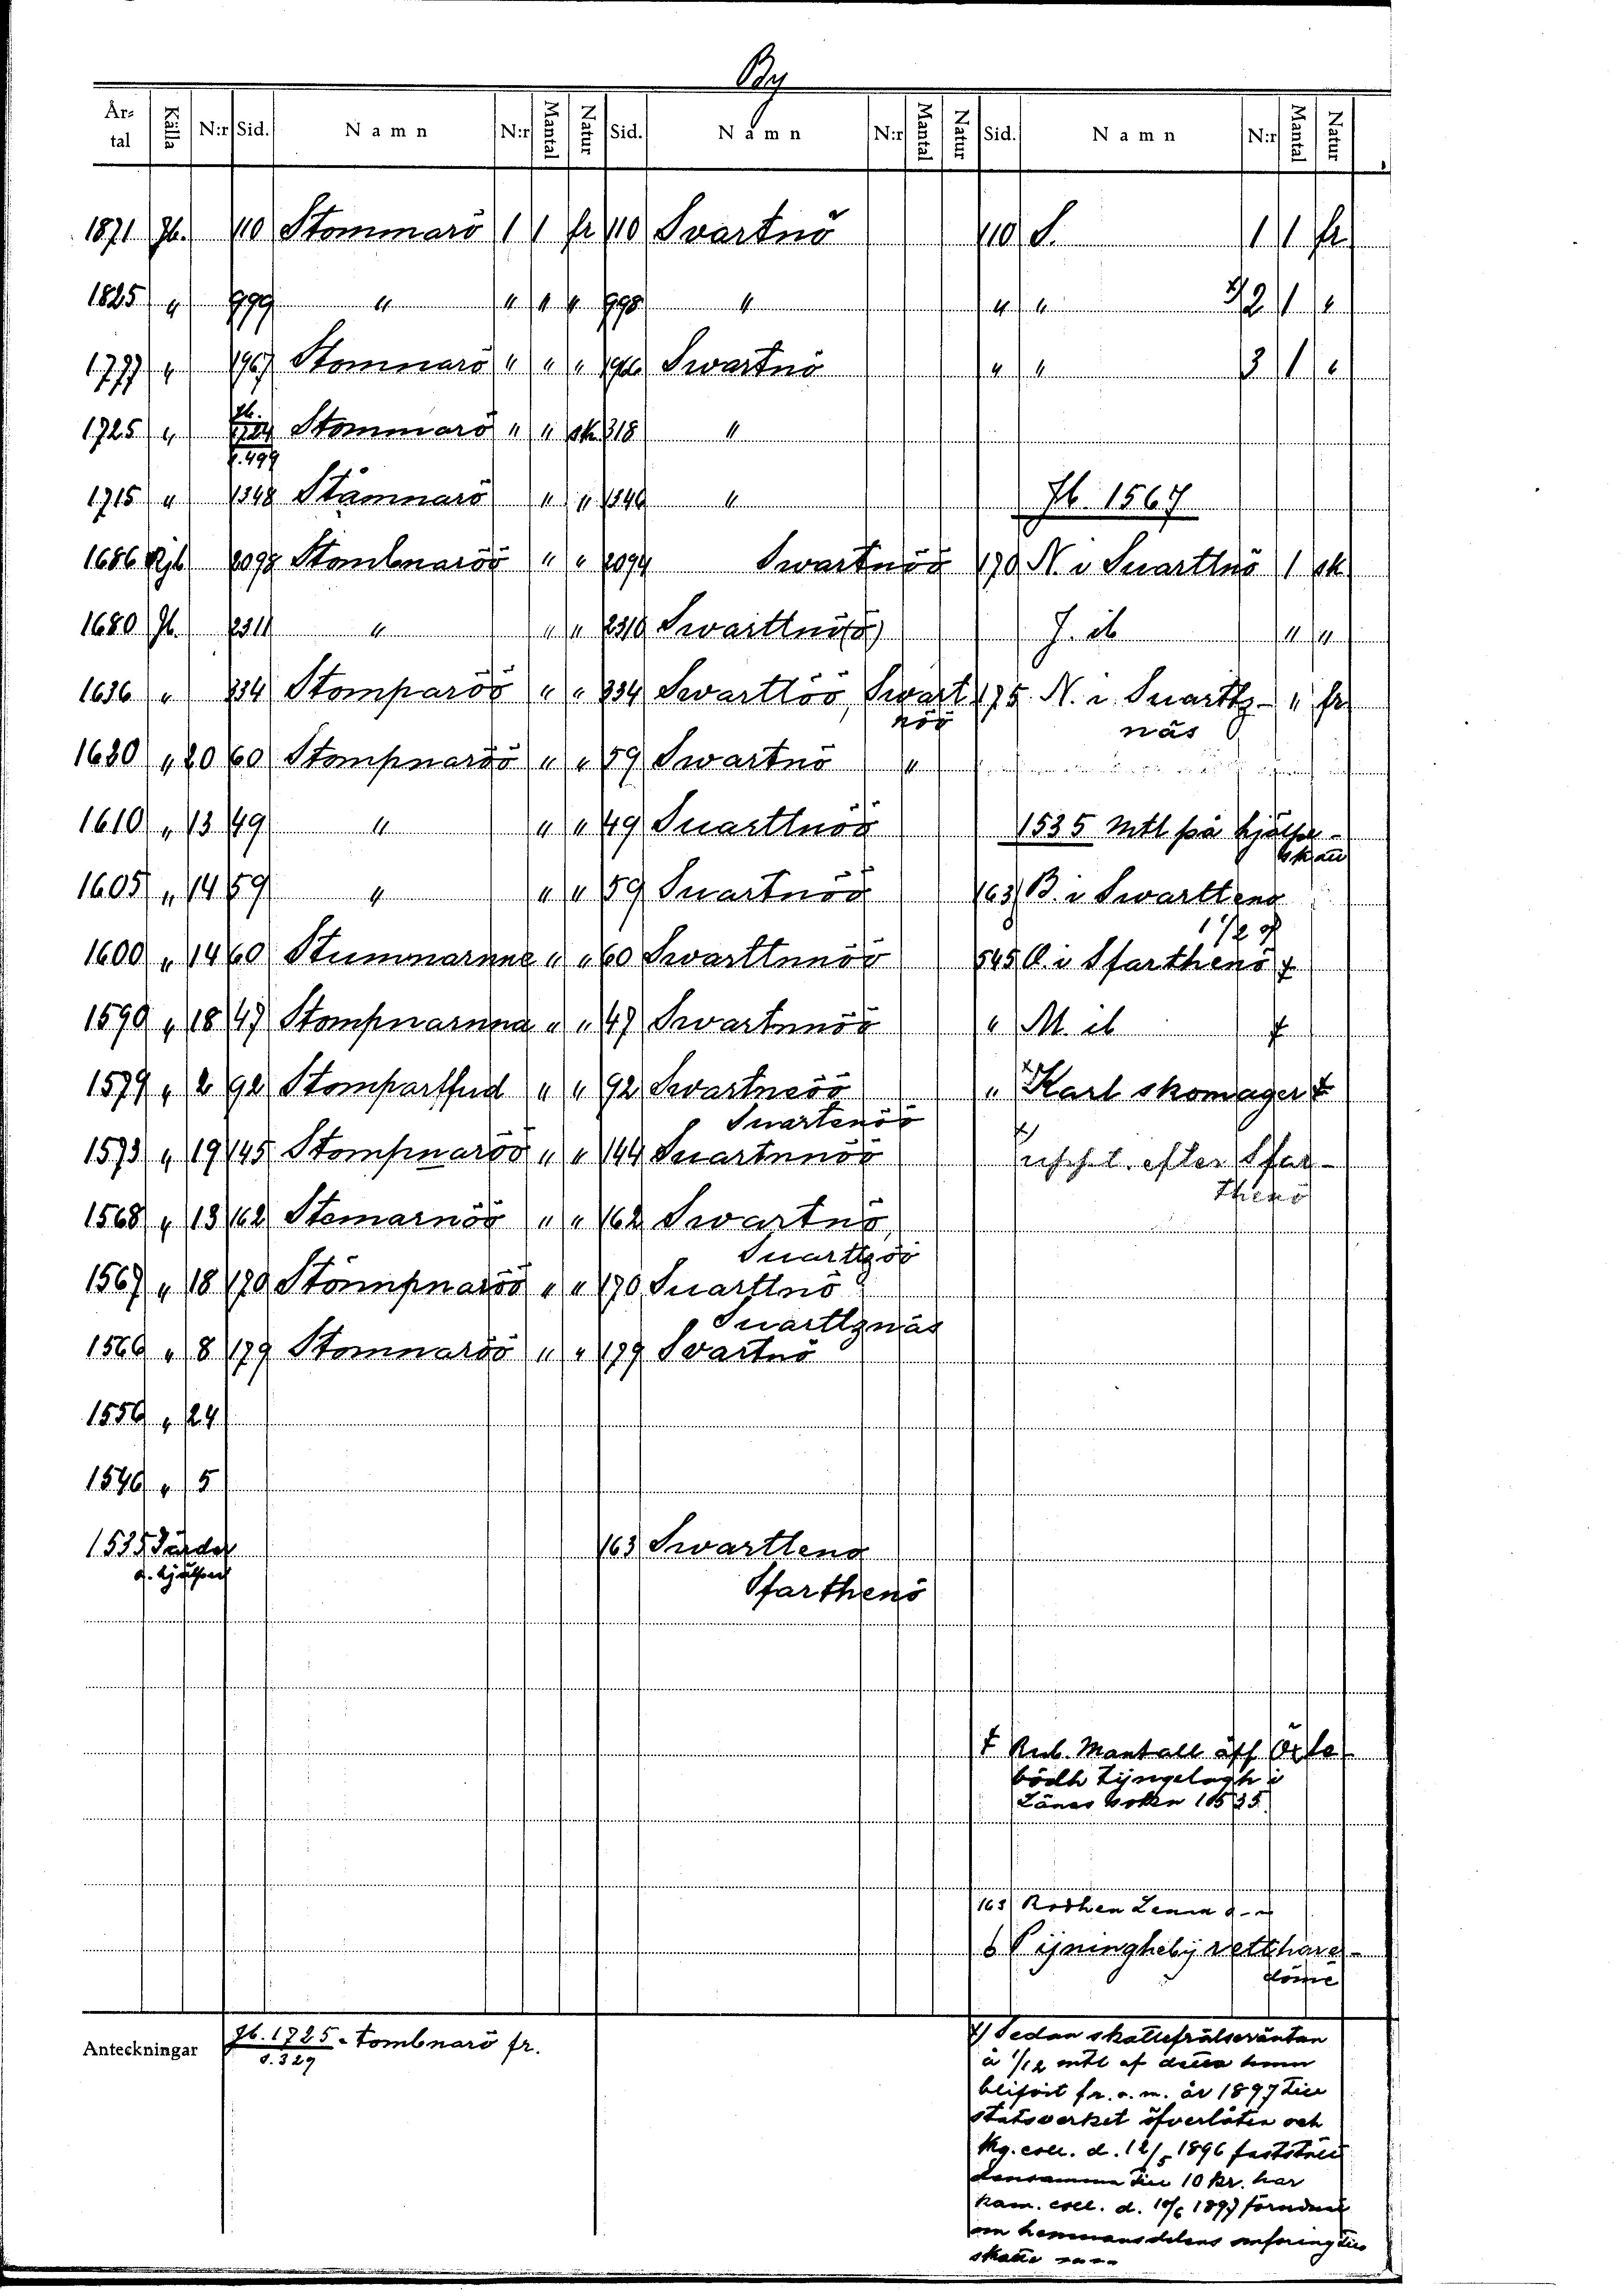 By
År-tal Källa N:r Sid. Namn N:r Mantal Natur Sid. Namn N:r Mantal Natur Sid. Namn N:r Mantal Natur
1871 Jb. 110 Stommarö 1 1 fr 110 Svartnö 110 S. 1 1 fr
1825 " 999 " " " " 998 " " " 2 1 "
1777 " 1967 Stomnarö " " " 1966 Swartnö " " 3 1 "
1725 " Jb. 1724 s. 499 Stommarö " " sk. 318 "
1715 " 1348 Stamnarö " " 1346 " Jb. 1567
1686 Rjb 2098 Stombnaröö " " 2094 Swartnöö 170 N. i Suarttnö 1 sk
1680 Jb. 2311 " " " 2310 Swarttnö(ö) J. ib " "
1636 " 334 Stomparöö " " 334 Swarttöö, Swart 175 N. i Suarttz- " fr
nöö näs
1620 " 20 60 Stompnaröö " " 59 Swartnö "
1610 " 13 49 " " " 49 Suarttnöö 1535 Mtl på hjälpe-
skatt
1605 " 14 59 " " " 59 Suartnöö 163 B. i Swarttenö
1 1/2
1600 " 14 60 Stummarnne " " 60 Swarttnnöö 545 O. i Sfarthenö ⨍
1590 " 18 47 Stompnarnna " " 47 Swartnnöö " M. ib ⨍
1579 " 2 92 Stompartfud " " 92 Swartneöö " x) Karl skomager ⨍
Suartenöö
1573 " 19 145 Stompnaröö " " 144 Suartnnöö x) uppt. efter Sfar-
thenö
1568 " 13 162 Stemarnöö " " 162 Swartnö,
Suarttzöö
1567 " 18 170 Stömpnaröö " " 170 Suarttnö
Suarttznäs
1566 " 8 179 Stomnaröö " " 179 Svartnö
1556 " 24
1546 " 5
1535 Gärder 163 Swarttenö
o. hjälpen Sfarthenö
⨍ Rub. Mantall äff Öfle
bödh Tijngelagh i
Länes boken 1535
163 Rothen Lenna
6 Pijningheby retthare-
döme
Anteckningar Jb. 1725 s. 329 - Tombnarö fr.
x) Sedan skattefrälseräntan
à 1/12 mtl af detta hmn
blifvit fr. o. m. år 1897 till
statsverket öfverlåten och
Kg. coll. d. 12/5 1896 fastställt
densamma till 10 kr. har
kam. coll. d. 10/6 1897 förordnat
om hemmansdelens omföring till
skatte